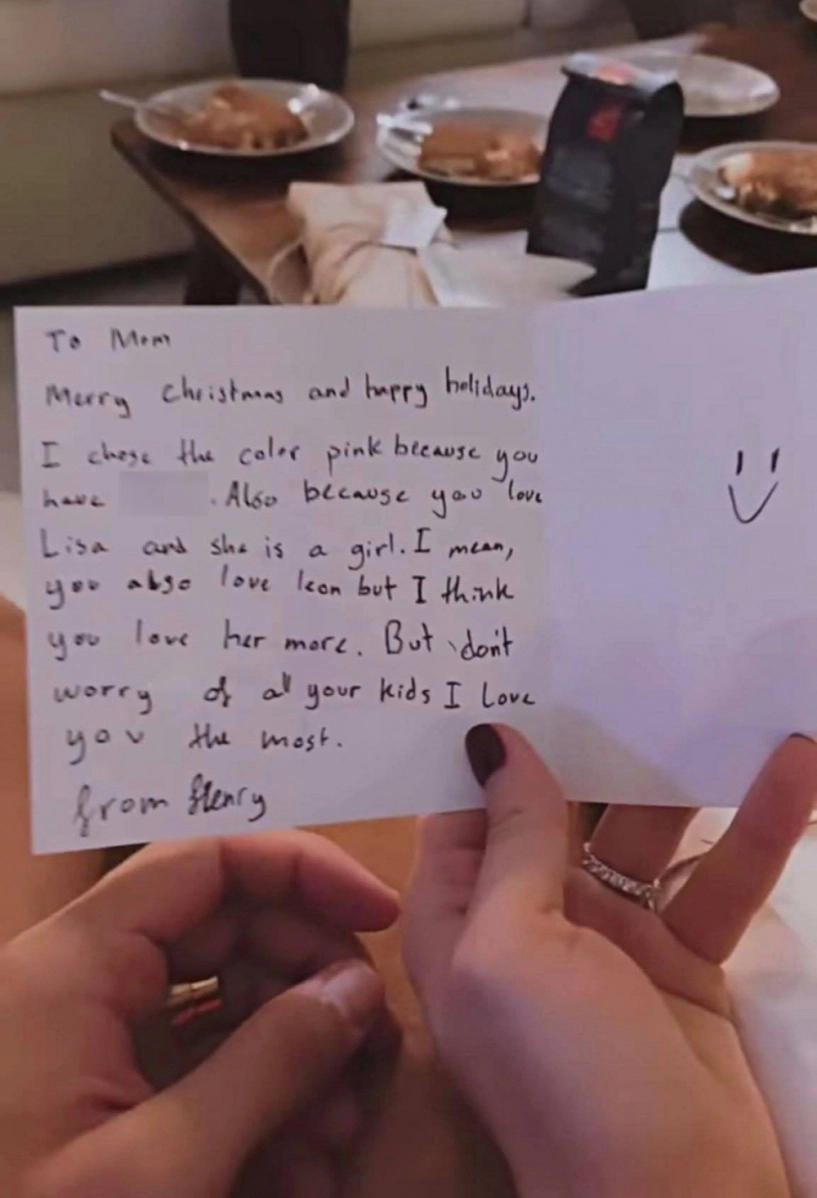 To Mom
Merry Christmas and happy holidays.
I chose the color pink because you
have . Also because you love
Lisa and she is a girl. I mean,
you also love leon but I think
you love her more. But don't
worry of all your kids I love
you the most.
from Henry